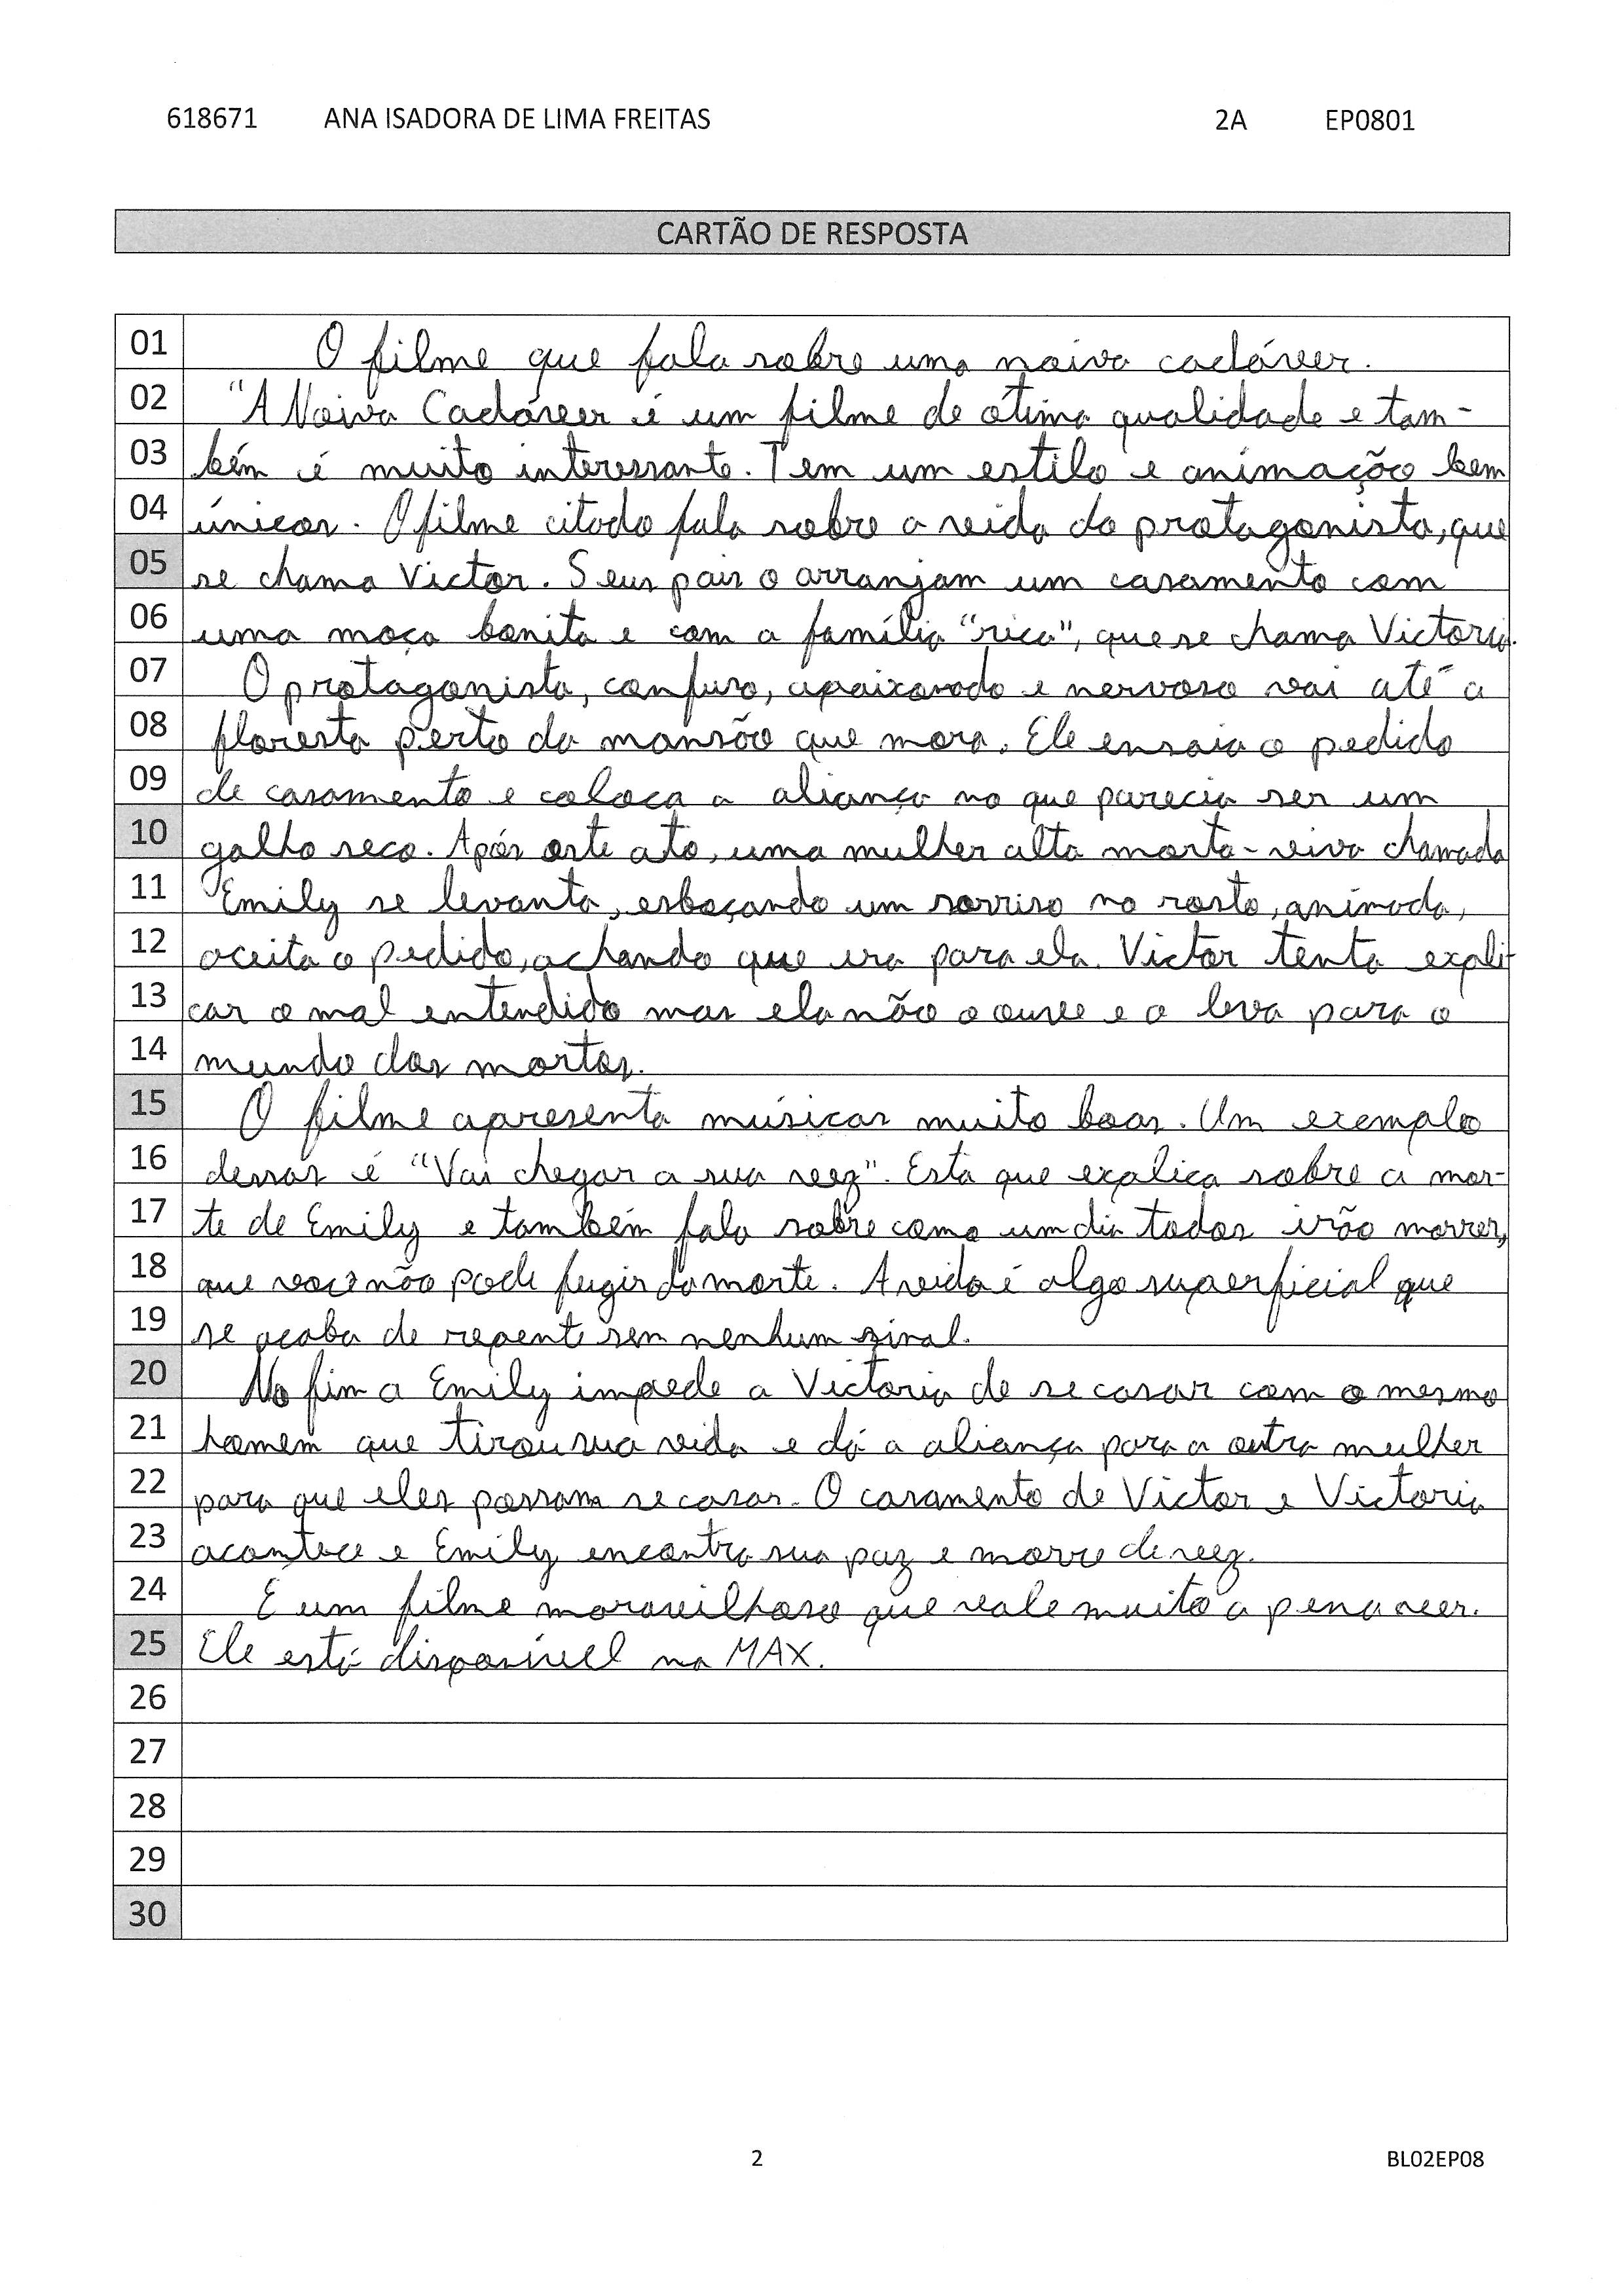 618671 ANA ISADORA DE LIMA FREITAS 2A EP0801
CARTÃO DE RESPOSTA
01 O filme que fala sobre uma noiva cadáver.
02 "A Noiva Cadáver é um filme de ótima qualidade e tam-
03 bém é muito interessante. Tem um estilo e animação bem
04 únicos. O filme citado fala sobre a vida do protagonista, que
05 se chama Victor. Seus pais o arranjam um casamento com
06 uma moça bonita e com a família "rica", que se chama Victoria.
07 O protagonista, confuso, apaixonado e nervoso vai até a
08 floresta perto da mansão que mora. Ele ensaia o pedido
09 de casamento e coloca a aliança no que parecia ser um
10 galho seco. Após este ato, uma mulher alta morta-viva chamada
11 Emily se levanta, esboçando um sorriso no rosto, animada,
12 aceita o pedido, achando que era para ela. Victor tenta expli-
13 car o mal entendido mas ela não o ouve e o leva para o
14 mundo dos mortos.
15 O filme apresenta músicas muito boas. Um exemplo
16 dessas é "Vai chegar a sua vez". Esta que explica sobre a mor-
17 te de Emily e também fala sobre como um dia todos irão morrer,
18 que você não pode fugir da morte. A vida é algo superficial que
19 se acaba de repente sem nenhum sinal.
20 No fim a Emily impede a Victoria de se casar com o mesmo
21 homem que tirou sua vida e dá a aliança para a outra mulher
22 para que eles possam se casar. O casamento de Victor e Victoria
23 acontece e Emily encontra sua paz e morre de vez.
24 É um filme maravilhoso que vale muito a pena ver.
25 Ele está disponível na MAX.
26
27
28
29
30
2 BL02EP08